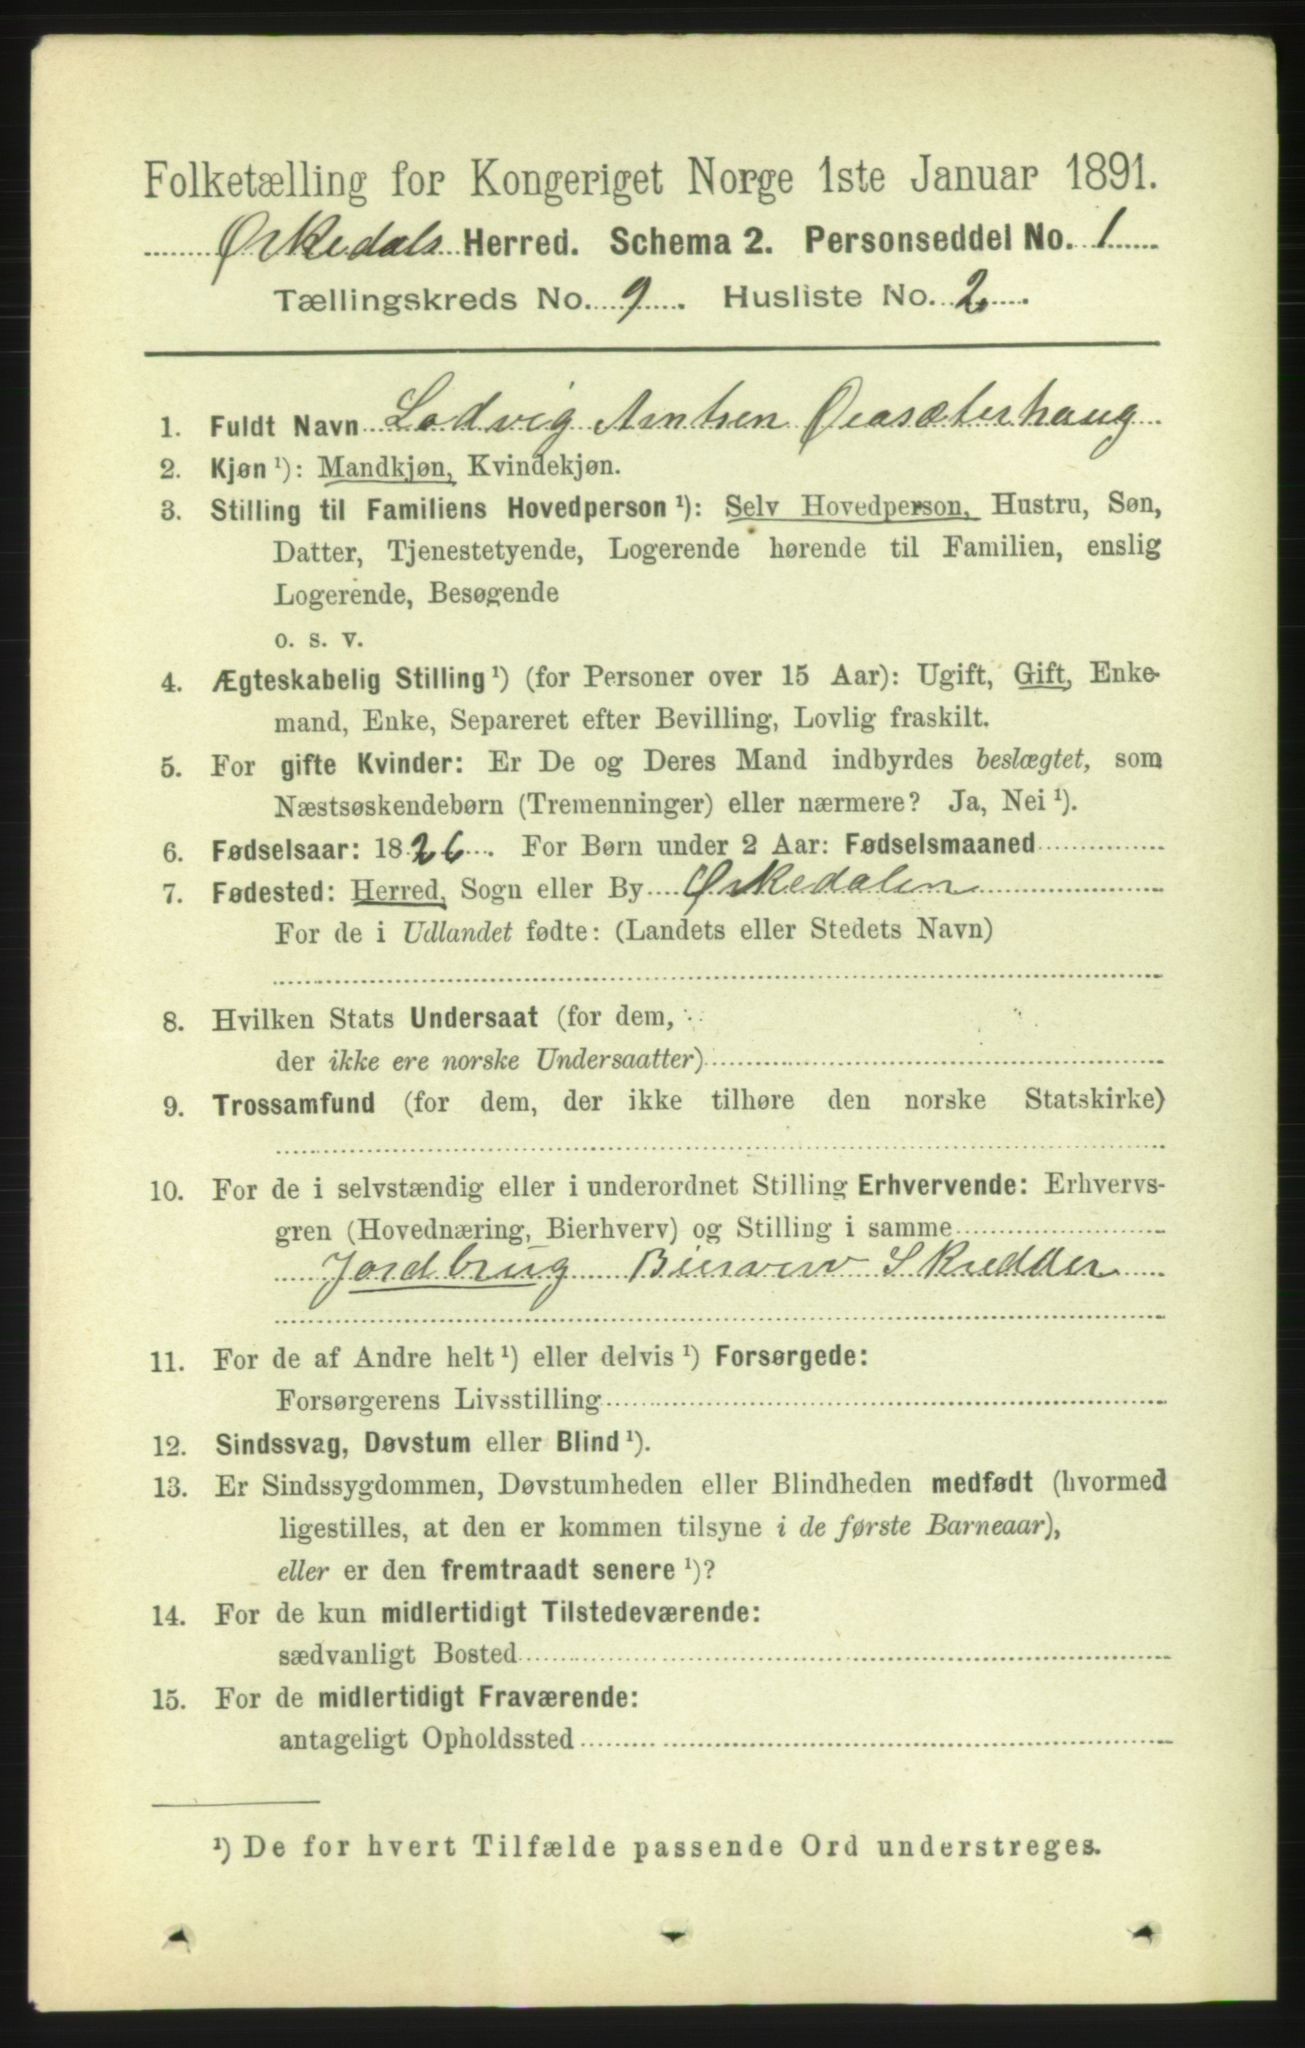 Folketælling for Kongeriget Norge 1ste Januar 1891.
Ørkedals Herred. Schema 2. Personseddel No. 1
Tællingskreds No. 9. Husliste No. 2.
1. Fuldt Navn Lodvig Arntsen
2. Kjøn ¹): Mandkjøn, Kvindekjøn.
3. Stilling til Familiens Hovedperson ¹): Selv Hovedperson, Hustru, Søn,
Datter, Tjenestetyende, Logerende hørende til Familien, enslig
Logerende, Besøgende
o. s. v.
4. Ægteskabelig Stilling ¹) (for Personer over 15 Aar): Ugift, Gift, Enke-
mand, Enke, Separeret efter Bevilling, Lovlig fraskilt.
5. For gifte Kvinder: Er De og Deres Mand indbyrdes beslægtet, som
Næstsøskendebørn (Tremenninger) eller nærmere? Ja, Nei ¹).
6. Fødselsaar: 1826. For Børn under 2 Aar: Fødselsmaaned
7. Fødested: Herred, Sogn eller By Ørkedalen
For de i Udlandet fødte: (Landets eller Stedets Navn)
8. Hvilken Stats Undersaat (for dem,
der ikke ere norske Undersaatter)
9. Trossamfund (for dem, der ikke tilhøre den norske Statskirke)
10. For de i selvstændig eller i underordnet Stilling Erhvervende: Erhvervs-
gren (Hovednæring, Bierhverv) og Stilling i samme
Jordbrug Skrædder
11. For de af Andre helt ¹) eller delvis ¹) Forsørgede:
Forsørgerens Livsstilling
12. Sindssvag, Døvstum eller Blind ¹).
13. Er Sindssygdommen, Døvstumheden eller Blindheden medfødt (hvormed
ligestilles, at den er kommen tilsyne i de første Barneaar),
eller er den fremtraadt senere ¹)?
14. For de kun midlertidigt Tilstedeværende:
sædvanligt Bosted
15. For de midlertidigt Fraværende:
antageligt Opholdssted
¹) De for hvert Tilfælde passende Ord understreges.